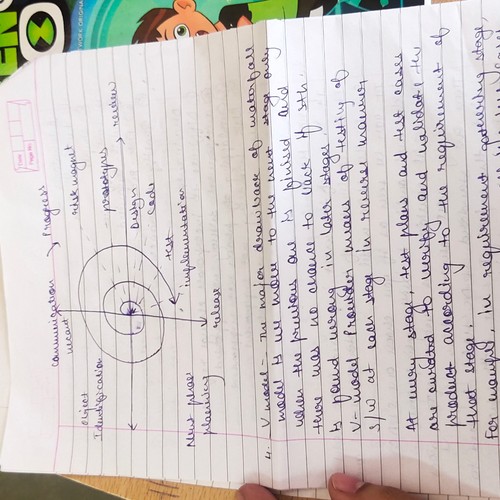 BEN
NETWORK ORIGINAL
Date
Page No.
Communication
Progress
risk magnet
prototypes
review
Object
Identification
Design
Code
test
implementation
release
Next phase
planning
4. V model - The major drawback of waterfall
model is we move to the next stage only
when the previous one is finished and
there was no chance to back if sth.
is found wrong in later stage.
V-model Provides means of testing of
s/w at each stage in reverse manner
At every stage, test plans and test cases
are created to verify and validate the
product according to the requirement of
that stage.
For example in requirement gathering stage,